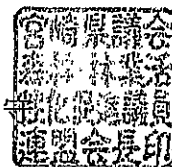 宮崎県議会
森林・林業活
性化促進議員
連盟会長印